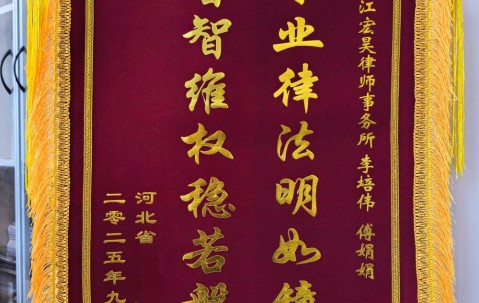 江宏昊律师事务所 李培伟 傅娟娟
业律法明如镜
智维权稳若磐
河北省
二零二五年九